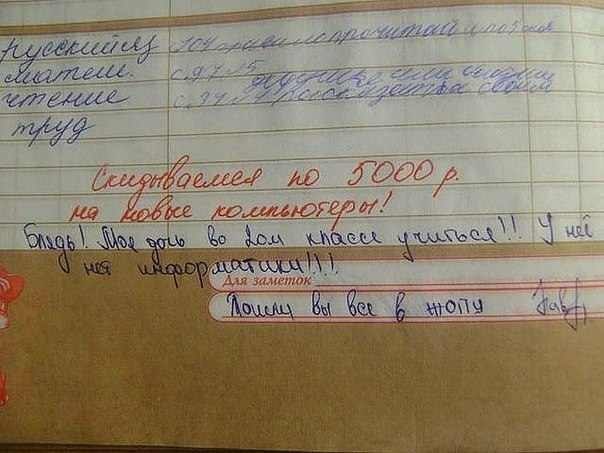 русский яз 104 правило прочитай и
матем. с. 97 15
чтение с. 94 рассказ
труд
Скидываемся по 5000 р.
на новые компьютеры!
Блядь! Моя дочь во 2ом классе учиться!!! У неё
нет информатики!!!!
Для заметок
Пошли вы все в жопу